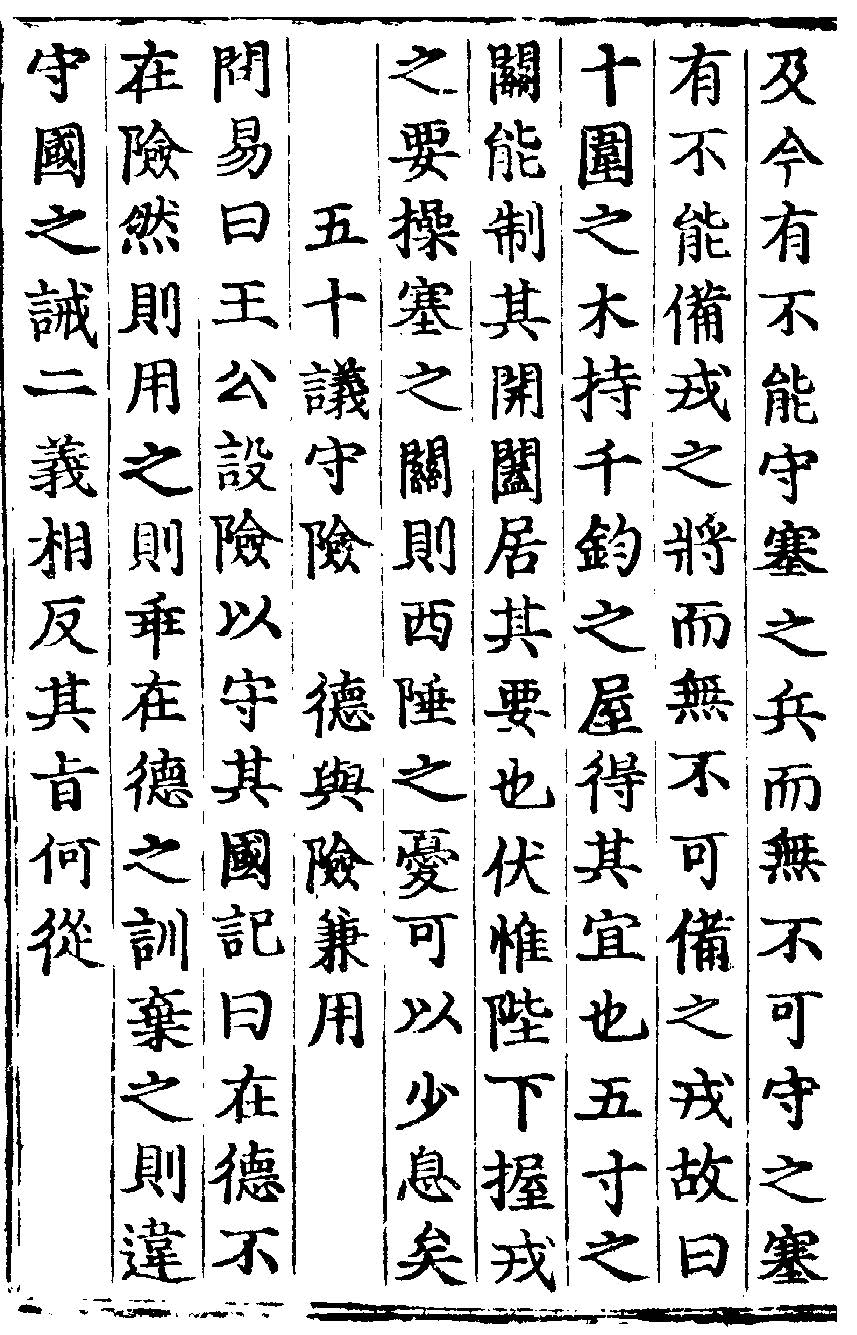 及今有不能守塞之兵而無不可守之塞
有不能備戎之將而無不可備之戎故曰
十圍之木持千鈞之屋得其宜也五寸之
關能制其開闔居其要也伏惟陛下握戎
之要操塞之關則西陲之憂可以少息矣
五十議守險　德與險兼用
問易曰王公設險以守其國記曰在德不
在險然則用之則乖在德之訓棄之則違
守國之誡二義相反其旨何從